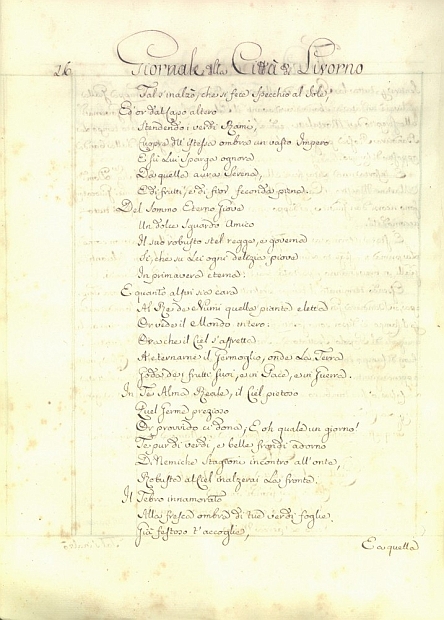 26 Giornale della Città di Livorno
Tal s'inalzò, che si fece Specchio al Sole;
Ed or dal capo altero
Stendendo i verdi Rami,
Cuopre all'istessa ombra un vasto Impero
E sù Lui Sparga ognora
Da quella aura Serena,
E di frutti, e di fior feconda piena.
Del Sommo Eterno Giove
Un dolce Sguardo Amico
Il suo robusto stel regge, e governa
Sì, che su Lei ogni delizia piova
In primavera eterna.
E quanto altrui sia cara
Al Rè de Numi quella pianta eletta
Or vede il Mondo intero;
Ora che il Ciel s'affretta
Ad eternarne il Germoglio, onde La Terra
Goda de i frutti suoi, e in Pace, e in Guerra.
In Te, Alma Reale, il Ciel pietoso
Quel Germe prezioso
Or provvido ci dona; E oh quale un giorno!
Te pur di verdi, e belle frondi adorno
Di Nemiche Stagioni incontro all'onte,
Robusto al Ciel inalzerai La fronte.
Il Tebro innamorato
Alla fresca ombra di tue verdi foglie
Già festoso t'accoglie,
E a quella